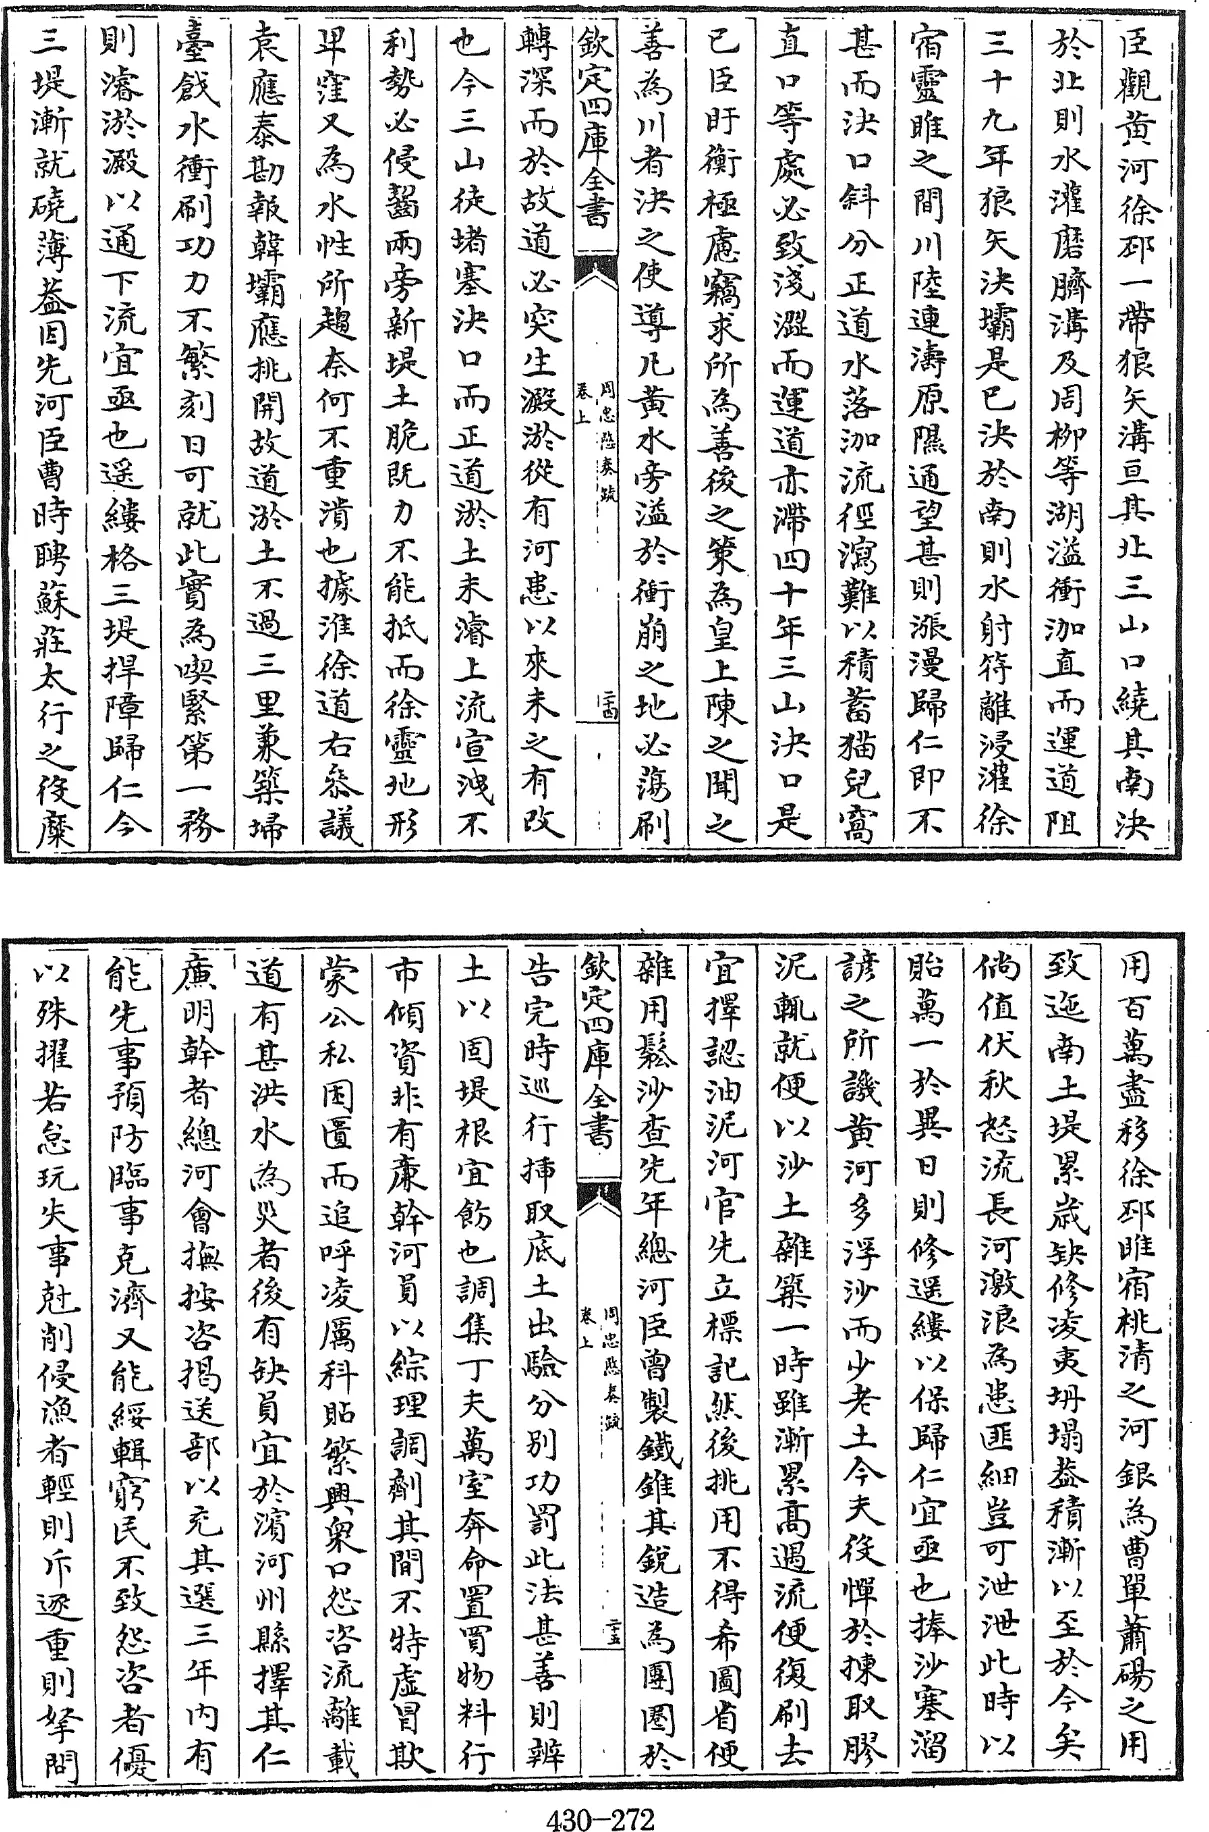 臣觀黄河徐邳一帶狼矢溝亘其北三山口繞其南決
於北則水灌磨臍溝及周柳等湖溢衝泇直而運道阻
三十九年狼矢決壩是已決於南則水射符離浸灌徐
宿靈睢之間川陸連濤原隰通望甚則漲漫歸仁即不
甚而決口斜分正道水落泇流徑瀉難以積蓄猫兒窩
直口等處必致淺澀而運道亦滯四十年三山決口是
已臣盱衡極慮竊求所為善後之策為皇上陳之聞之
善為川者決之使導凡黄水旁溢於衝崩之地必蕩刷
欽定四庫全書
周忠愍奏疏
卷上
二十四
轉深而於故道必突生澱淤從有河患以來未之有改
也今三山徒堵塞決口而正道淤土未濬上流宣洩不
利勢必侵齧兩旁新堤土脆既力不能抵而徐靈地形
卑窪又為水性所趨奈何不重潰也據淮徐道右叅議
袁應泰勘報韓壩應挑開故道淤土不過三里兼築埽
臺戧水衝刷功力不繁刻日可就此實為喫緊第一務
則濬淤澱以通下流宜亟也遥縷格三堤捍障歸仁今
三堤漸就磽薄葢因先河臣曹時聘蘇莊太行之役糜
用百萬盡移徐邳睢宿桃清之河銀為曹單蕭碭之用
致迤南土堤累歲缺修凌夷坍塌葢積漸以至於今矣
倘值伏秋怒流長河激浪為患匪細豈可泄泄此時以
貽萬一於異日則修遥縷以保歸仁宜亟也捧沙塞溜
諺之所譏黄河多浮沙而少老土今夫役憚於揀取膠
泥輒就便以沙土雜築一時雖漸累髙遇流便復刷去
宜擇認油泥河官先立標記然後挑用不得希圖省便
雜用鬆沙查先年總河臣曾製鐵錐其銳造為團圈於
欽定四庫全書
周忠愍奏疏
卷上
二十五
告完時巡行揷取底土出驗分别功罰此法甚善則辨
土以固堤根宜飭也調集丁夫萬室奔命置買物料行
市傾資非有亷幹河員以綜理調劑其間不特虚冒欺
蒙公私困匱而追呼凌厲科貼繁興衆口怨咨流離載
道有甚洪水為災者後有缺員宜於濱河州縣擇其仁
亷明幹者總河會撫按咨揭送部以充其選三年内有
能先事預防臨事克濟又能綏輯窮民不致怨咨者優
以殊擢若怠玩失事尅削侵漁者輕則斥逐重則拏問
430-272